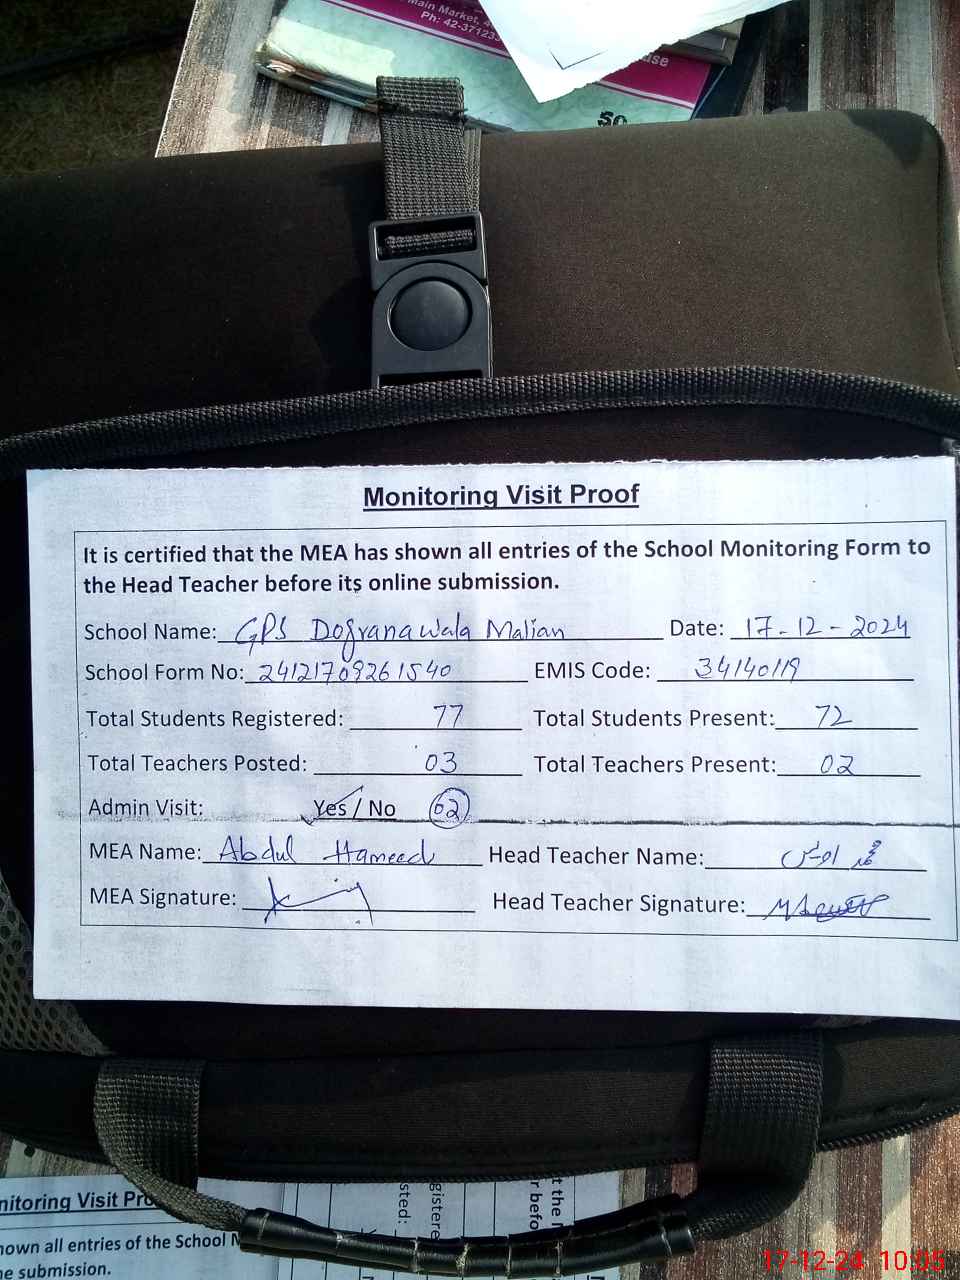 Main Market, 4
Ph: 42-37123
ase
50
Monitoring Visit Proof
It is certified that the MEA has shown all entries of the School Monitoring Form to
the Head Teacher before its online submission.
School Name: GPS Dogranawala Malian Date: 17-12-2024
School Form No: 24121709261540 EMIS Code: 34140119
Total Students Registered: 77 Total Students Present: 72
Total Teachers Posted: 03 Total Teachers Present: 02
Admin Visit: Yes / No 02
MEA Name: Abdul Hameed Head Teacher Name: محمد اویس
MEA Signature: Head Teacher Signature:
nitoring Visit Pro
hown all entries of the School M
ne submission.
sted:
gistere
r befo
t the
17-12-24 10:05